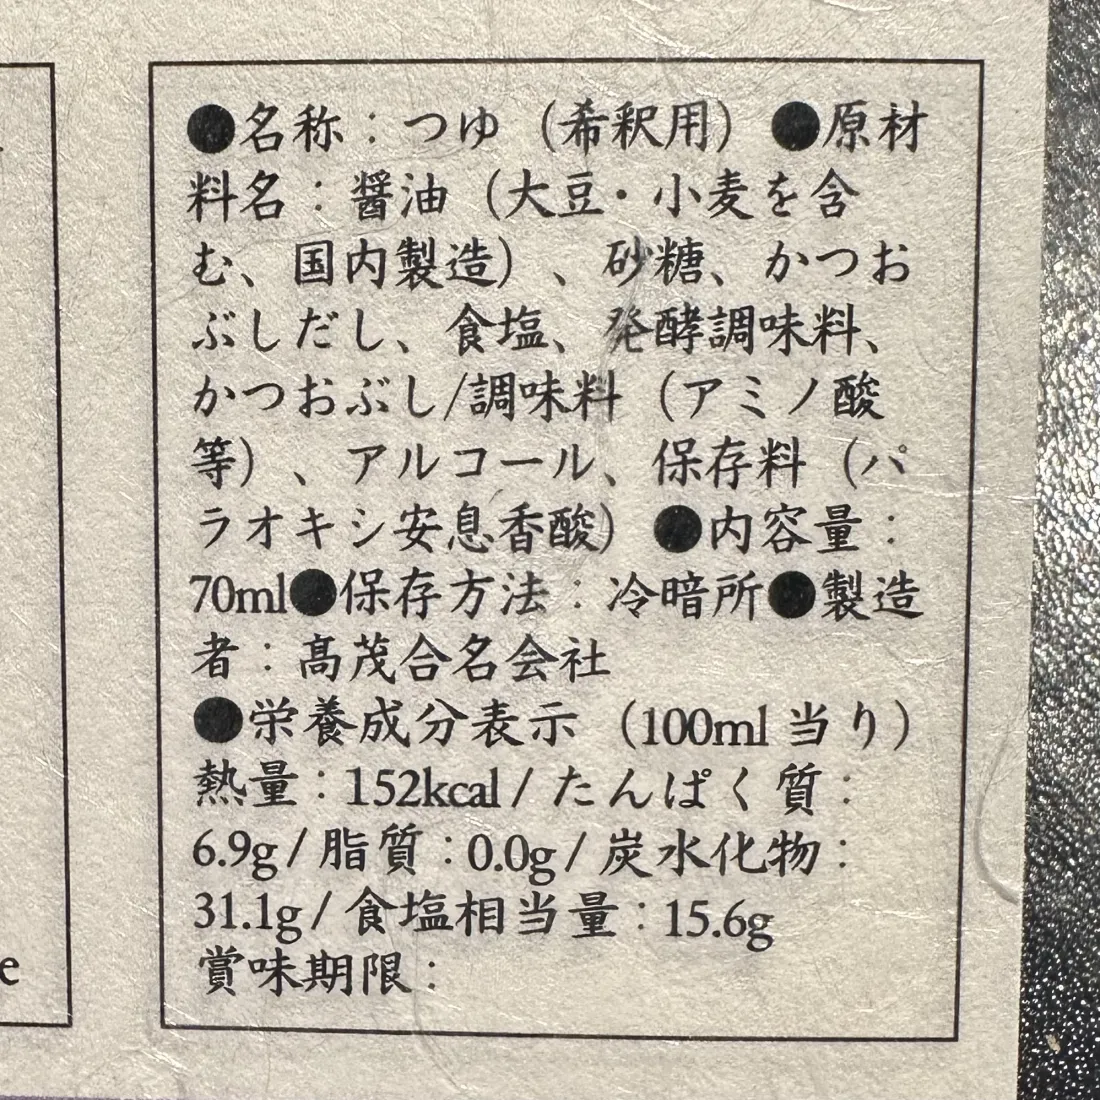 ●名称：つゆ（希釈用）●原材
料名：醤油（大豆・小麦を含
む、国内製造）、砂糖、かつお
ぶしだし、食塩、発酵調味料、
かつおぶし/調味料（アミノ酸
等）、アルコール、保存料（パ
ラオキシ安息香酸）●内容量：
70ml●保存方法：冷暗所●製造
者：髙茂合名会社
●栄養成分表示（100ml当り）
熱量：152kcal/たんぱく質：
6.9g/脂質：0.0g/炭水化物：
31.1g/食塩相当量：15.6g
賞味期限：